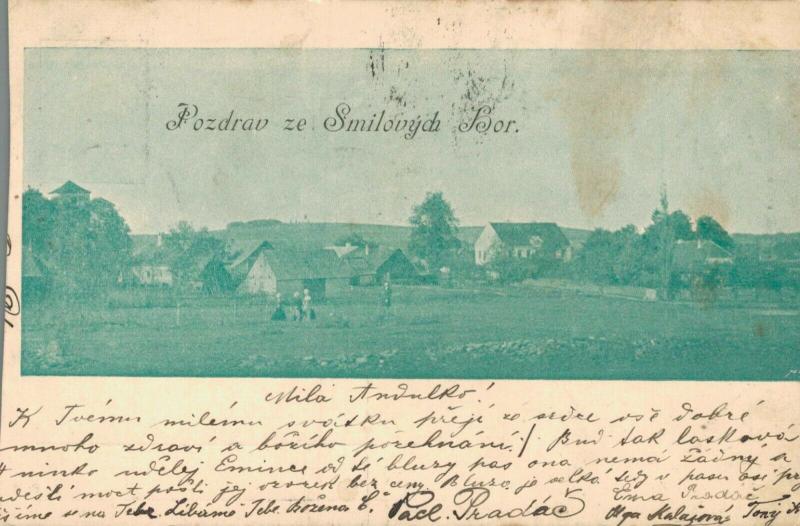 Pozdrav ze Smilových Hor.
Milá Andulko!
K Tvému milému svátku přeji ze srdce vše dobré
mnoho zdraví a božího požehnání. Buď tak laskavá
udělej Emince od té bluzy pas ona nemá žádný a
moct pošli jej bez ceny. Bluza je velká tedy v pasu asi
se na Tebe. Líbáme Tebe Božena Č. Pavl. Pradáč
Ema Pradáč
Olga Tony